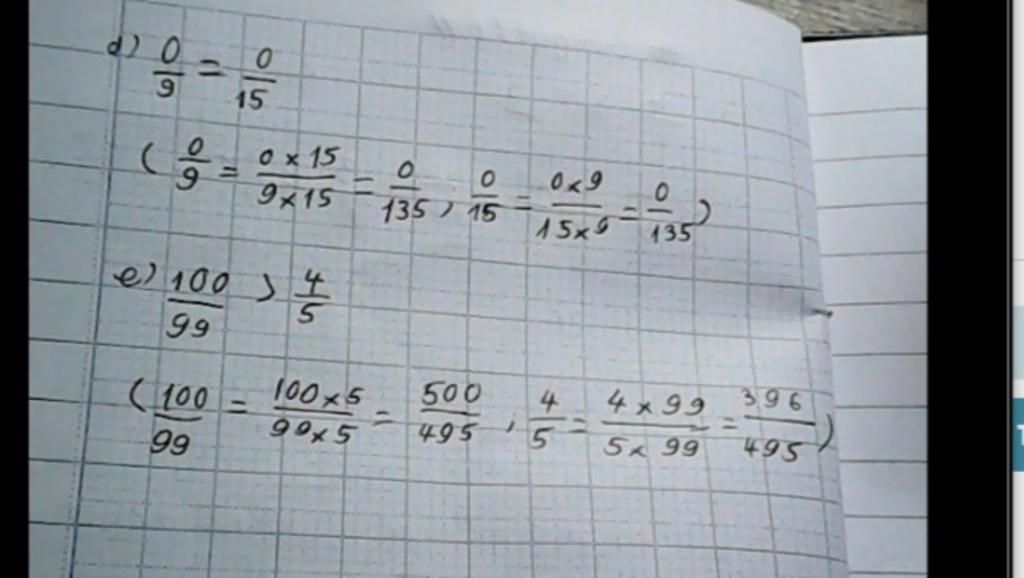 d) 0/9 = 0/15
( 0/9 = 0 x 15 / 9 x 15 = 0/135 , 0/15 = 0 x 9 / 15 x 9 = 0/135 )
e) 100/99 > 4/5
( 100/99 = 100 x 5 / 99 x 5 = 500/495 , 4/5 = 4 x 99 / 5 x 99 = 396/495 )